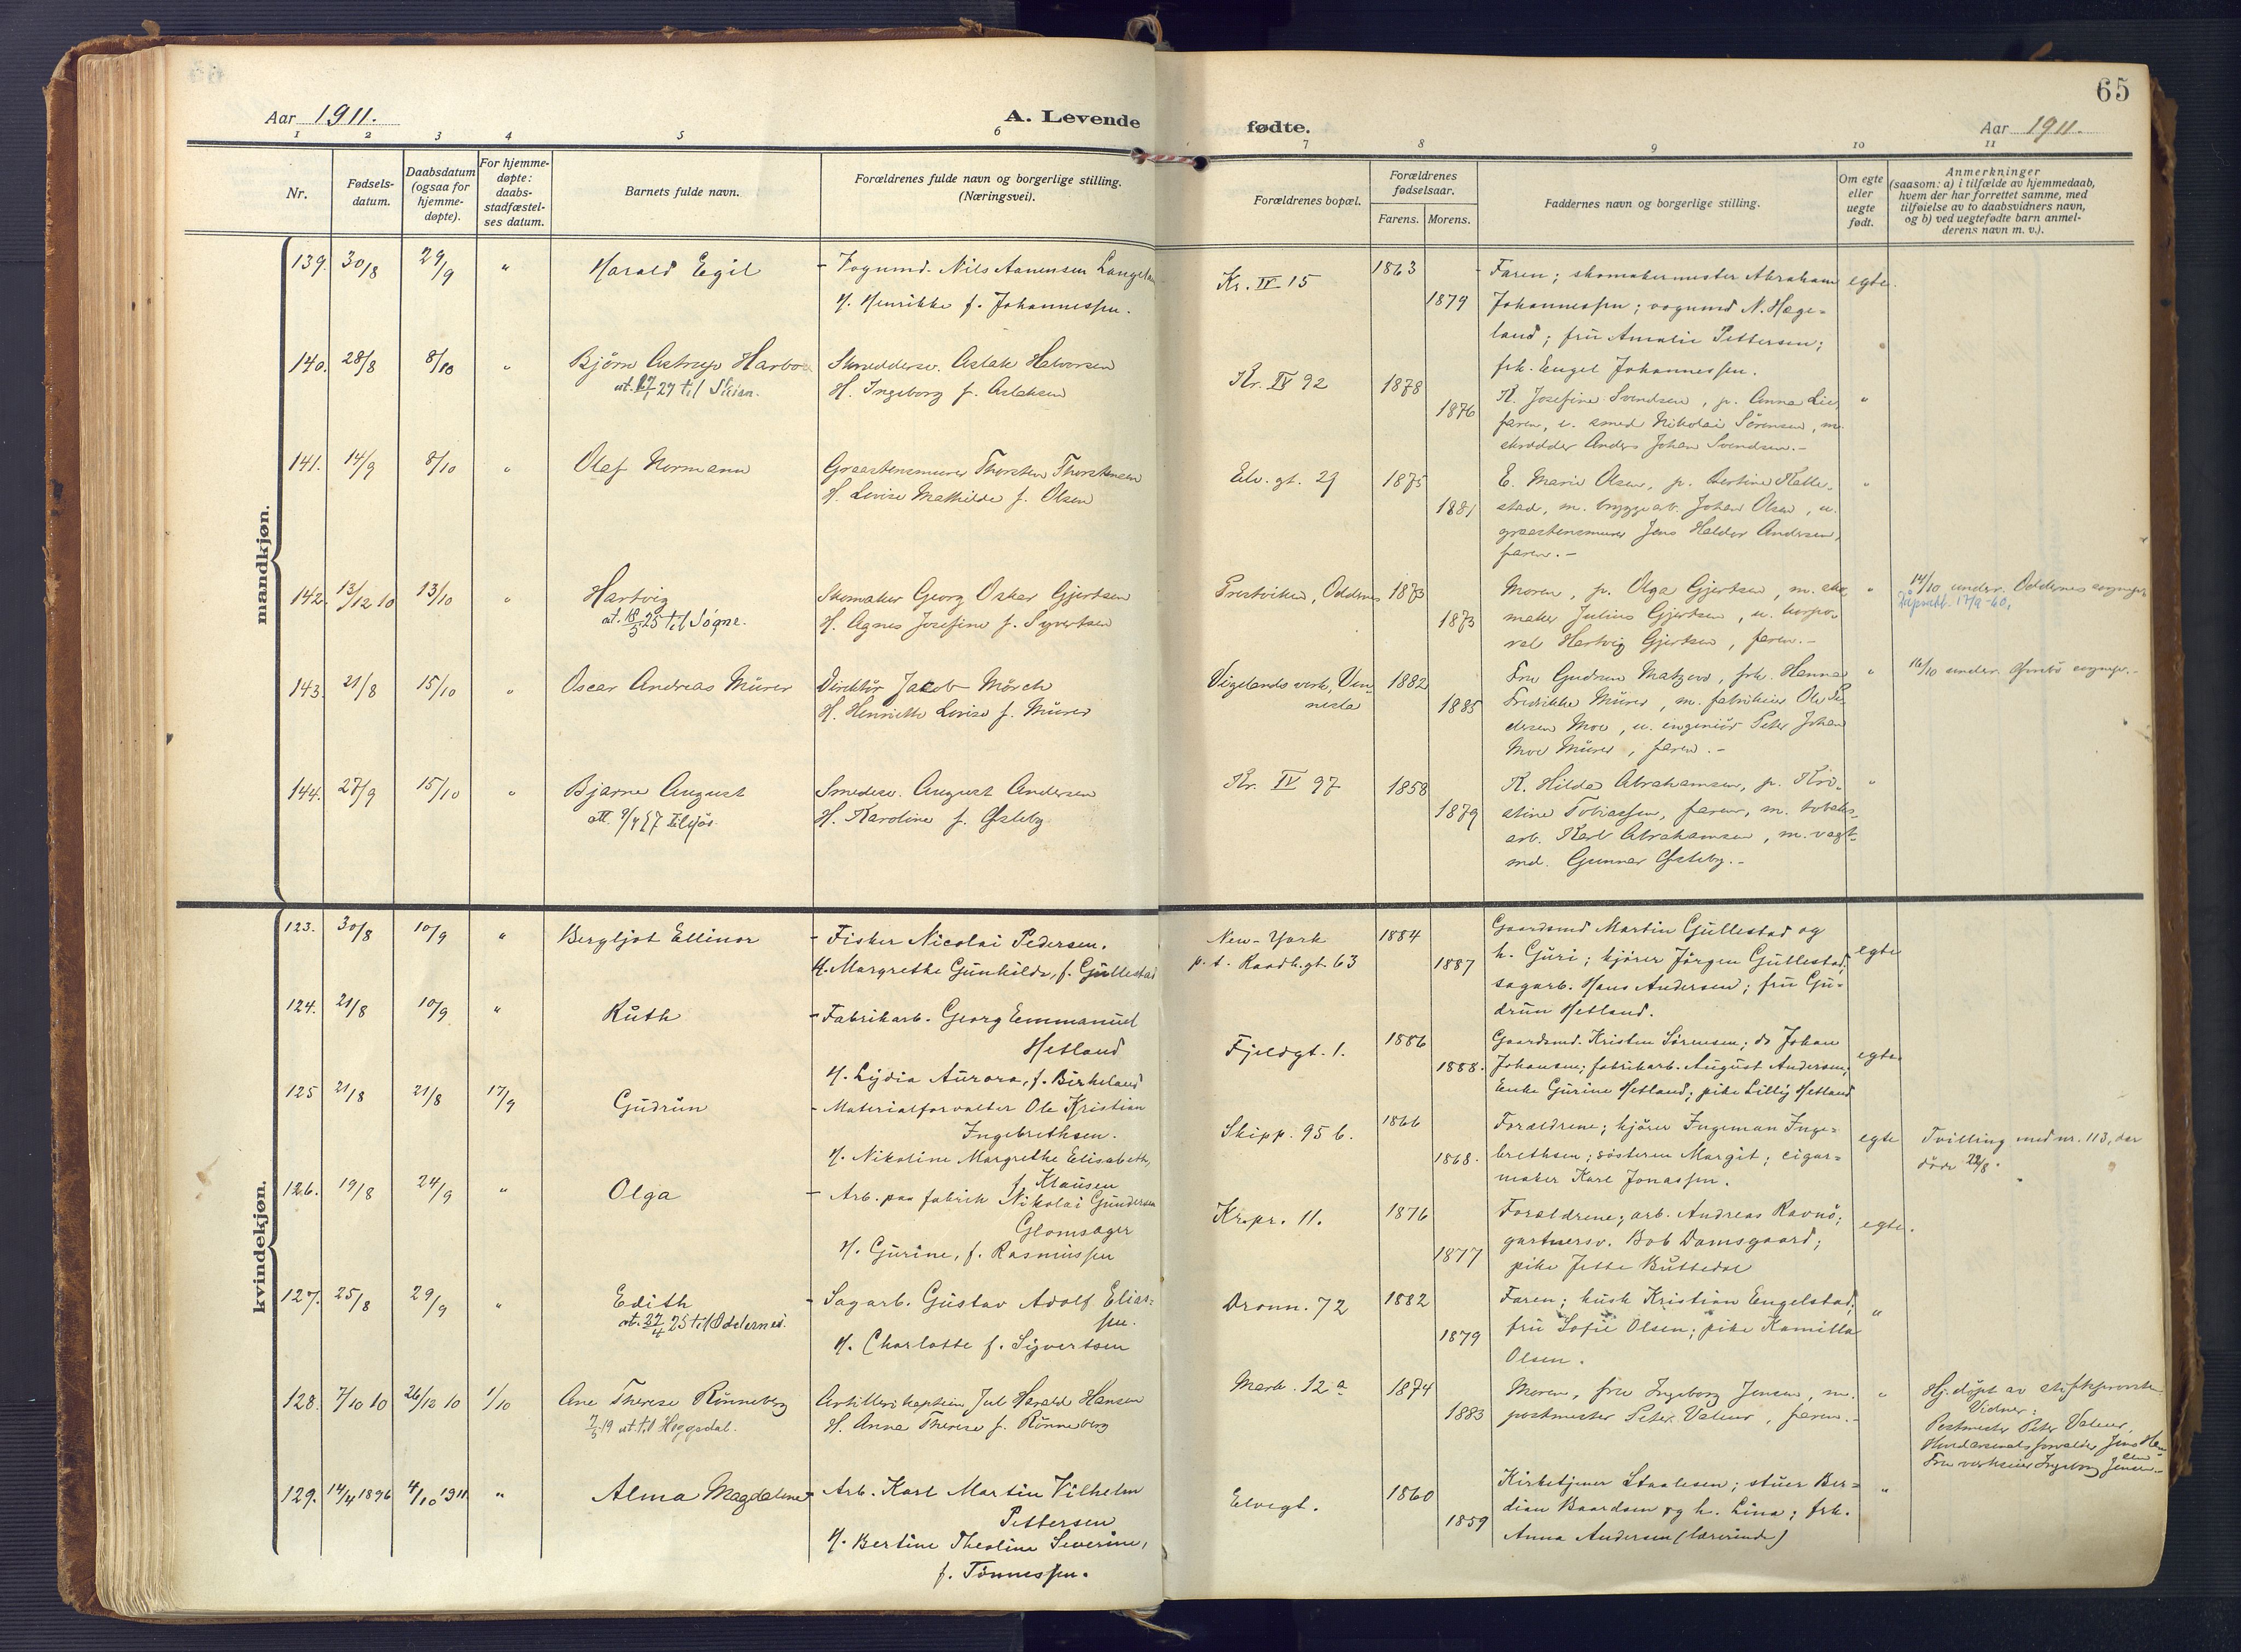 65
Aar 1911.
A. Levende fødte.
Aar 1911.
1 2 3 4 5 6 7 8 9 10 11
Nr.
Fødsels-
datum.
Daabsdatum
(ogsaa for
hjemme-
døpte).
For hjemme-
døpte:
daabs-
stadfæstel-
ses datum.
Barnets fulde navn.
Forældrenes fulde navn og borgerlige stilling.
(Næringsvei).
Forældrenes bopæl.
Forældrenes
fødselsaar.
Farens. Morens.
Faddernes navn og borgerlige stilling.
Om egte
eller
uegte
født.
Anmerkninger
(saasom: a) i tilfælde av hjemmedaab,
hvem der har forrettet samme, med
tilføielse av to daabsvidners navn,
og b) ved uegtefødte barn anmel-
derens navn m. v.).
mandkjøn.
139. 30/8 29/9 " Harald Egil
- Vognmd. Nils Aanensen
H. Henrikke f. Johannessen.
Kr. IV 15 1863
1879
- Faren; skomakermester Abraham
Johannessen; vognmd N. Hæge-
land; frü Amalie Pettersen;
frk. Engel Johannessen.
egte.
140. 28/8 8/10 " Bjørn Astrup Harboe
ut. 29 til Skien.
Skreddersv. Aslak Halvorsen
H. Ingeborg f. Aslaksen
Kr. IV 92 1878
1876
K. Josefine Svendsen, p. Anna Lie,
faren, u. smed Nikolai Sörensen, m.
skrædder Anders Johan Svendsen.-
"
141. 14/9 8/10 " Olaf Normann
Graastensmurer Thorsten Thorstensen
H. Lovise Mathilde f. Olsen
Elv. gt. 29 1875
1881
E. Marie Olsen, p. Bertine
stad, m. bryggearb. Johan Olsen, u.
graastensmurer Jens Haldor Andersen,
faren.-
"
142. 13/12 10 13/10 " Hartvig
ut. 18/5 25 til Søgne.
Skomaker Georg Oskar Gjertsen
H. Agnes Josefine f. Syvertsen
Prestviken, Oddernes 1873
1873
Moren, p. Olga Gjertsen, m. sko-
maker Julius Gjertsen, u. korpo-
ral Hartvig Gjertsen, faren.-
"
14/10 underr. Oddernes sognepr.
Dåpsatt. 17/9-60.
143. 21/8 15/10 " Oscar Andreas Mürer
Direktör Jacob Mörch
H. Henriette Lovise f. Mürer
Vigelands verk, Ven-
nesla
1882
1885
Fru Gudrun Matzow, frk. Hanna
Fredrikke Mürer, m. fabrikeier Ole Pe-
dersen Moe, u. ingeniör Peter Johan
Moe Mürer, faren.-
"
16/10 underr. sognepr.-
144. 27/9 15/10 " Bjarne August
Smedesv. August Andersen
H. Karoline f. Østeby
Kr. IV 97 1858
1879
K. Hilda Abrahamsen, p. Kri-
stine Tobiassen, faren, m. tobaks-
arb. Karl Abrahamsen, m. vagt-
md. Gunnar Østeby.-
"
kvindekjøn.
123. 30/8 10/9 " Bergljot Ellinor
- Fisker Nicolai Pedersen.
H. Margrethe Günhilda, f. Güllestad
New-York
p. t. Raadh.gt. 63
1884
1887
Gaardsmd Martin Güllestad og
h. Güri; kjører Jørgen Güllestad;
sagarb. Hans Andersen; frü Gü-
drün Hetland.
egte
124. 21/8 10/9 " Rüth
- Fabrikarb. Georg Emmanüel
Hetland
H. Lydia Aürora, f. Birkeland
Fjeldgt. 1. 1886
1888.
Gaardsmd. Kristen Sörensen; do Johan
Johansen; fabrikarb. Aügüst Andersen;
Enke Gürine Hetland; pike Lilly Hetland
egte
125 21/8 21/8 17/9 Güdrün
- Materialforvalter Ole Kristian
Ingebrethsen.
H. Nikoline Margrethe Elisabeth,
f. Klaüsen
Skipp. 95 b. 1866
1868.
Forældrene; kjører Ingeman Inge-
brethsen; søsteren Margit; cigar-
maker Karl Jonassen.
egte
Tvilling med nr. 113, der
døde 22/8.
126. 19/8 24/9 " Olga
- Arb. paa fabrik Nikolai Gündersen
Glomsager
H. Gürine, f. Rasmüssen
Kr.pr. 11. 1876
1877
Forældrene; arb. Andreas Ravnå;
gartnersv. Bob Damsgaard;
pike Jette Büttedal
egte.
127. 25/8 29/9 " Edith
ut. 27/4 25 til Oddernes.
- Sagarb. Güstav Adolf Elias-
sen.
H. Charlotte f. Sigvertsen
Dronn. 72 1882
1879
Faren; kusk Kristian Engelstad;
frü Sofie Olsen; pike Kamilla
Olsen.
"
128. 7/10 10 26/12 10 1/10 Ane Therese Rönneberg
7/5 19 ut. til Heggedal.
Artillerikaptein Jul Harald Hansen
H. Anna Therese f. Rönneberg
Mark. 12 a 1874
1883
Moren, frue Ingeborg Jensen, m.
postmester Peter Valeur, faren.-
"
Hj. døpt av stiftsprovst
Vidner:
Postmester Peter Valeur,
forvalter Jens
Fru Ingeborg Jensen.-
129. 14/4 1896 4/10 1911 " Alma Magdalene
- Arb. Karl Martin Vilhelm
Pettersen
H. Bertine Theoline Severine,
f. Tönnessen.
Elvegt. 1860
1859
Kirketjener Staalesen; stüer Ber-
dian Baardsen og h. Lina; frk.
Anna Andersen (lærerinde)
"